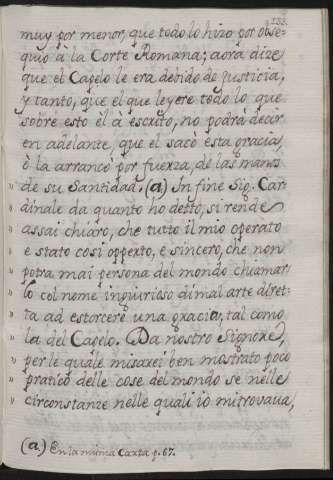 133.
muy por menor, que todo lo hizo por obse=
quio à la Corte Romana; aora dize
que el Capelo le era debido de justicia,
y tanto, que el que leyere todo lo que
sobre esto èl à escrito, no podrà decir
en adelante, que el sacò esta gracia,
ò la arrancò por fuerza, de las manos
de su Santidad. (a) In fine Sig. Car-
dinale da quanto ho detto, si rende
assai chiaro, che tutto il mio operato
e stato così apperto, e sincero, che non
potra mai persona del mondo chiamar-
lo col neme ingiurioso di mal arte diret-
ta ad estorcere una gracia, tal como
la del Capelo. Da nostro Signore,
per le quale misarei ben mostrato poco
pratico delle cose del mondo se nelle
circonstanze nelle quali io mitrovava,
(a.) En la misma Carta p. 67.